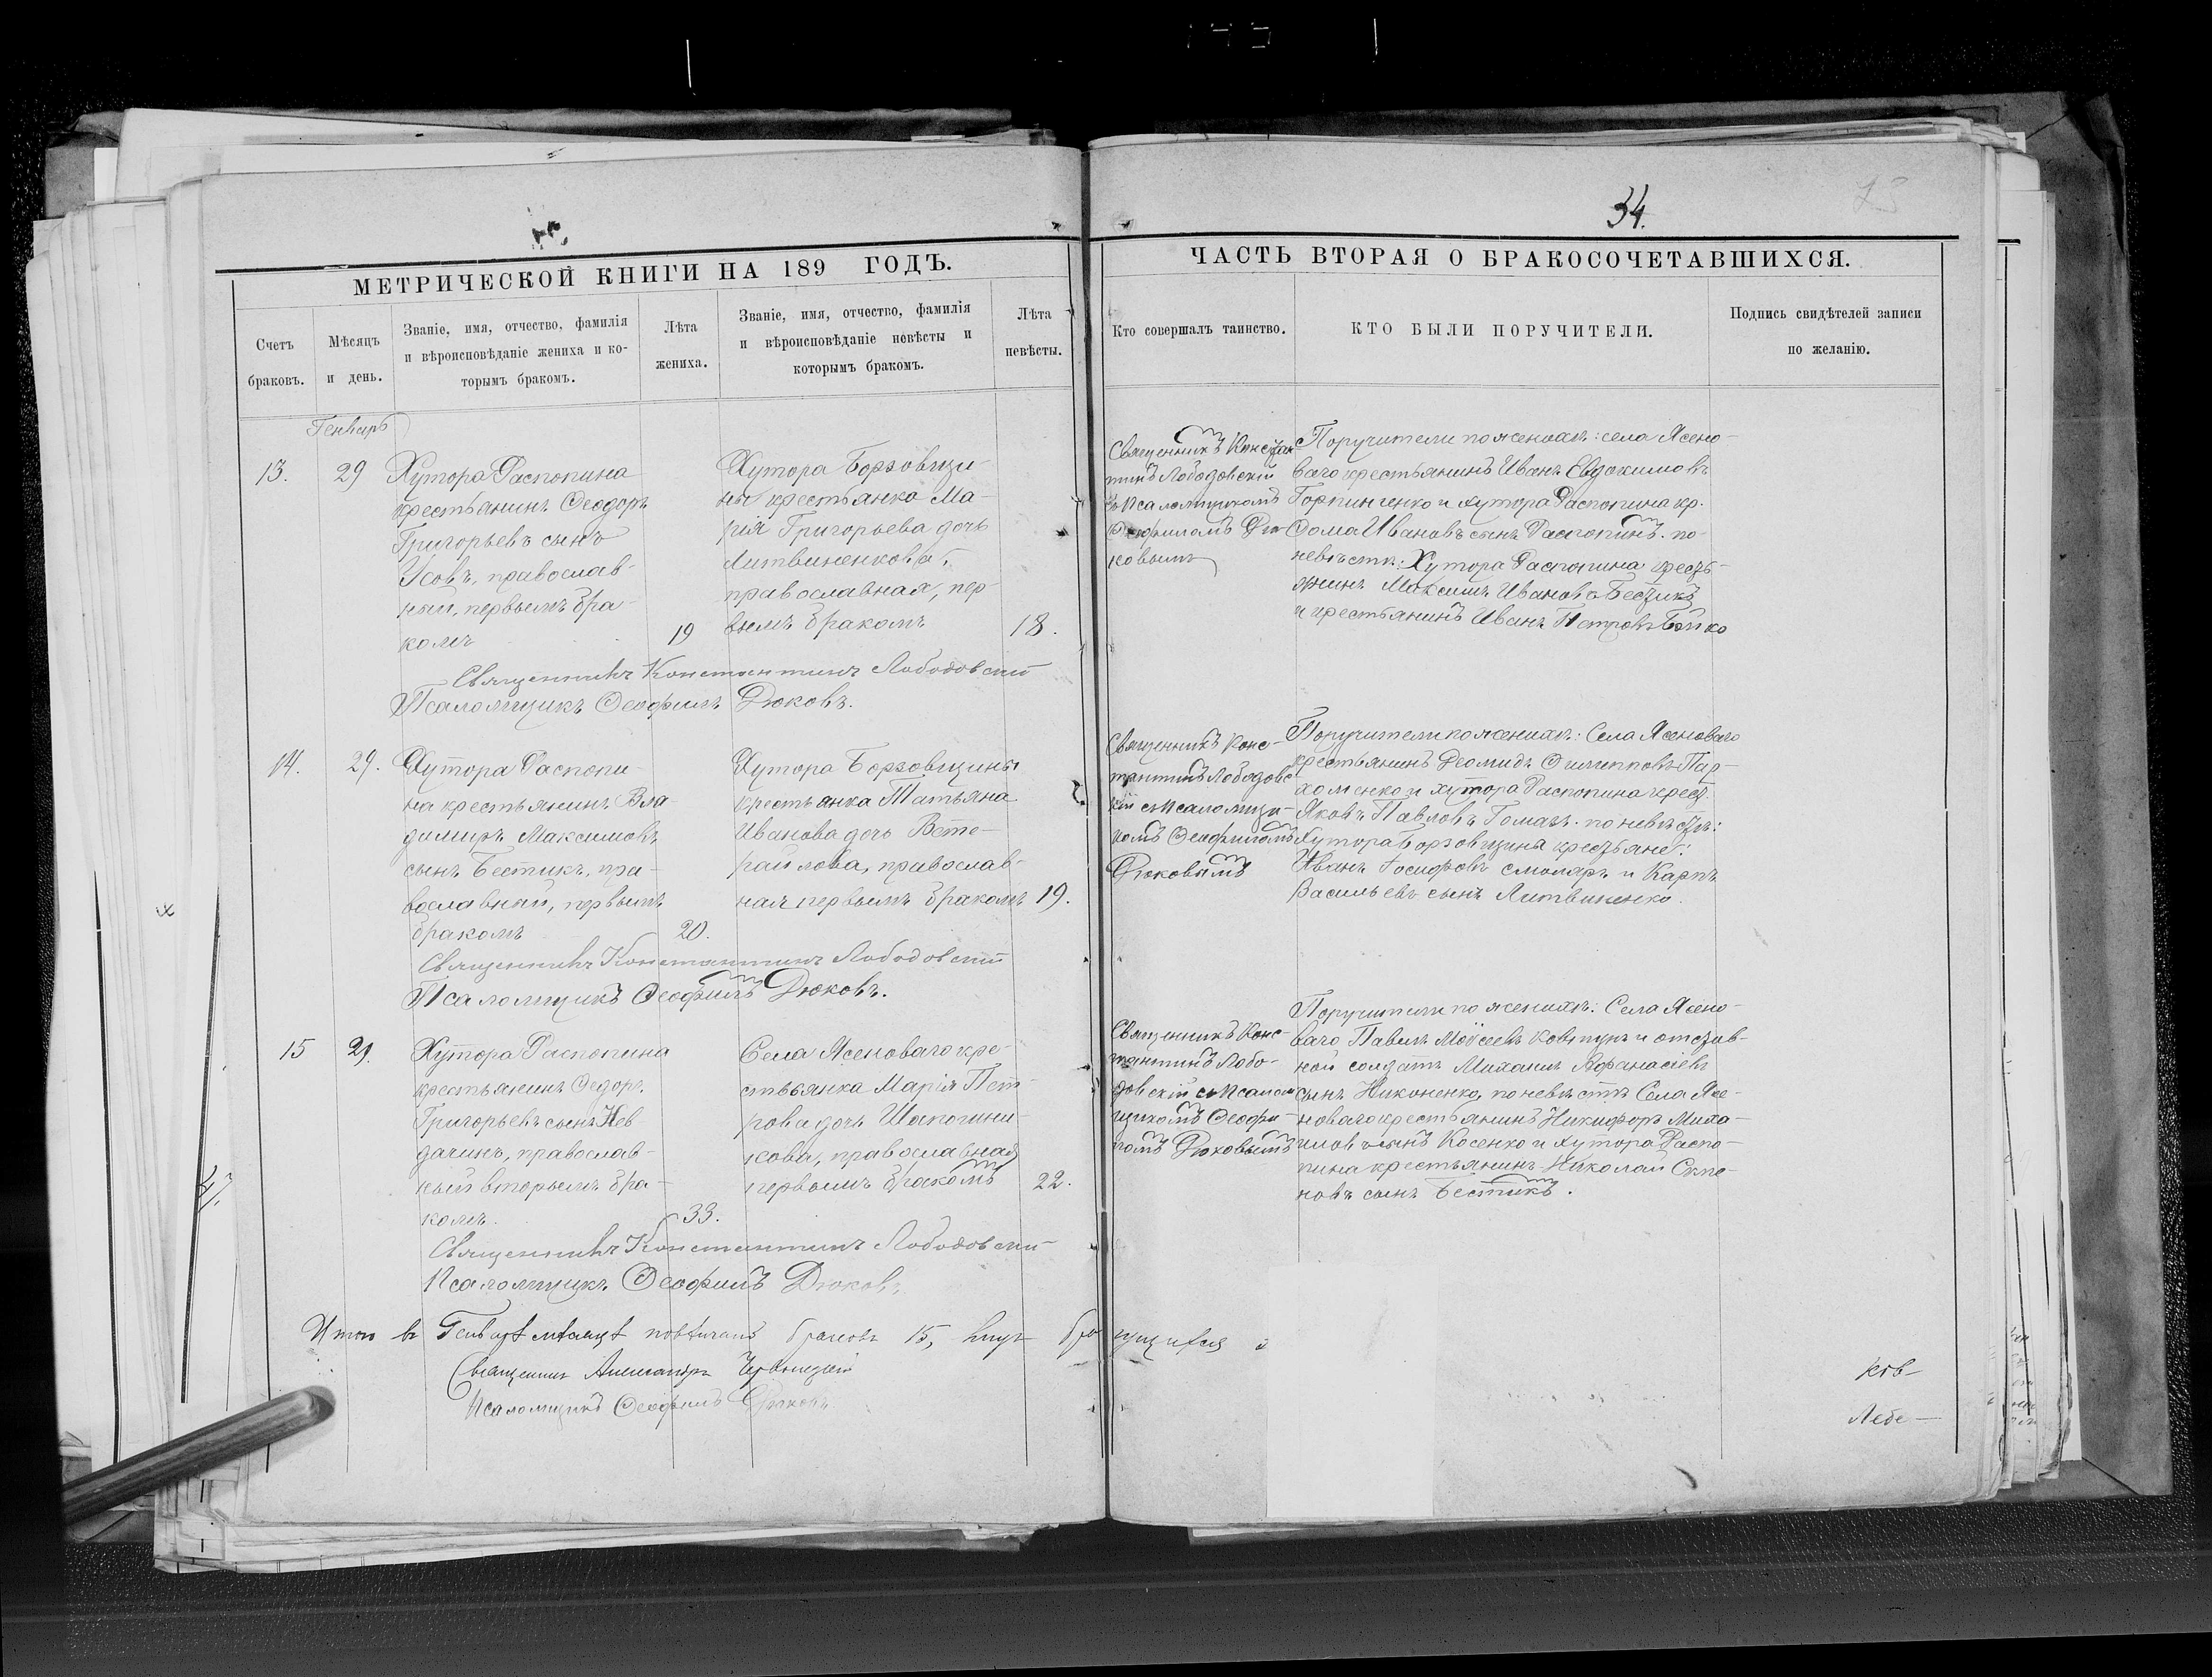 34.
МЕТРИЧЕСКОЙ КНИГИ НА 189 ГОДЪ.
ЧАСТЬ ВТОРАЯ О БРАКОСОЧЕТАВШИХСЯ.
Счетъ браковъ.
Мѣсяцъ и день.
Званіе, имя, отчество, фамилія
и вѣроисповѣданіе жениха и ко-
торымъ бракомъ.
Лѣта
жениха.
Званіе, имя, отчество, фамилія
и вѣроисповѣданіе невѣсты и
которымъ бракомъ.
Лѣта
невѣсты.
Кто совершалъ таинство.
КТО БЫЛИ ПОРУЧИТЕЛИ.
Подпись свидѣтелей записи
по желанію.
Генварь
13.
29
Хутора Распопина
крестьянинъ Ѳеодоръ
Григорьевъ сынъ
Усовъ, православ-
ный, первымъ бра-
комъ
19
Хутора Борзовщи-
ны крестьянка Ма-
рія Григорьева дочь
Литвиненкова,
православная, пер-
вымъ бракомъ
18.
Священникъ Констан-
тинъ Лободовскій
съ Псаломщикомъ
Ѳеофиломъ Дю-
ковымъ
Поручители по женихѣ: села Ясено-
ваго крестьянинъ Иванъ Евдокимовъ
Горпинченко и хутора Распопина кр.
Ѳома Ивановъ сынъ Распопинъ. по
невѣстѣ: Хутора Распопина кресть-
янинъ Максимъ Ивановъ Бестикъ
и крестьянинъ Иванъ Петровъ Бойко
Священникъ Константинъ Лободовскій
Псаломщикъ Ѳеофилъ Дюковъ.
14.
29.
Хутора Распопи-
на крестьянинъ Вла-
димиръ Максимовъ
сынъ Бестикъ, пра-
вославный, первымъ
бракомъ
20.
Хутора Борзовщины
крестьянка Татьяна
Иванова дочь
православ-
ная первымъ бракомъ
19.
Священникъ Конс-
тантинъ Лободовс-
кій съ Псаломщи-
комъ Ѳеофиломъ
Дюковымъ
Поручители по женихѣ: Села Ясеноваго
крестьянинъ Деомидъ Филипповъ Пар-
хоменко и хутора Распопина крест.
Яковъ Павловъ Гомазъ. по невѣстѣ:
Хутора Борзовщина крестьяне:
Иванъ Іосифовъ Смоляръ и Карпъ
Васильевъ сынъ Литвиненко.
Священникъ Константинъ Лободовскій
Псаломщикъ Ѳеофилъ Дюковъ.
15
29.
Хутора Распопина
крестьянинъ Ѳедоръ
Григорьевъ сынъ Нев
дачинъ, православ-
ный вторымъ бра-
комъ.
33.
Села Ясеноваго кре-
стьянка Марія Пет-
рова дочь
кова, православная
первымъ бракомъ
22.
Священникъ Конс-
тантинъ Лобо-
довскій съ Псалом
щикомъ Ѳеофи-
ломъ Дюковымъ
Поручители по женихѣ: Села Ясено-
ваго Павелъ Моѵсеевъ Ковтунъ и отстав-
ной солдатъ Михаилъ Афанасіевъ
сынъ Никоненко, по невѣстѣ Села Ясе-
новаго крестьянинъ Никифоръ Миха-
иловъ сынъ Косенко и хутора Распо-
пина крестьянинъ Николай Семе-
новъ сынъ Бестикъ.
Священникъ Константинъ Лободовскій
Псаломщикъ Ѳеофилъ Дюковъ
Итого въ Генварѣ мѣсяцѣ повѣнчано браковъ 15,
Священникъ Александръ
Псаломщикъ Ѳеофилъ Дюковъ
Лебе-